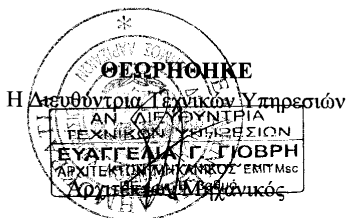 ΘΕΩΡΗΘΗΚΕ
Η Διευθύντρια Τεχνικών Υπηρεσιών
ΑΝ. ΔΙΕΥΘΥΝΤΡΙΑ
ΤΕΧΝΙΚΩΝ ΥΠΗΡΕΣΙΩΝ
ΕΥΑΓΓΕΛΙΑ Γ. ΓΙΟΒΡΗ
ΑΡΧΙΤΕΚΤΩΝ ΜΗΧΑΝΙΚΟΣ ΕΜΠ Msc
Αρχιτέκτων Μηχανικός